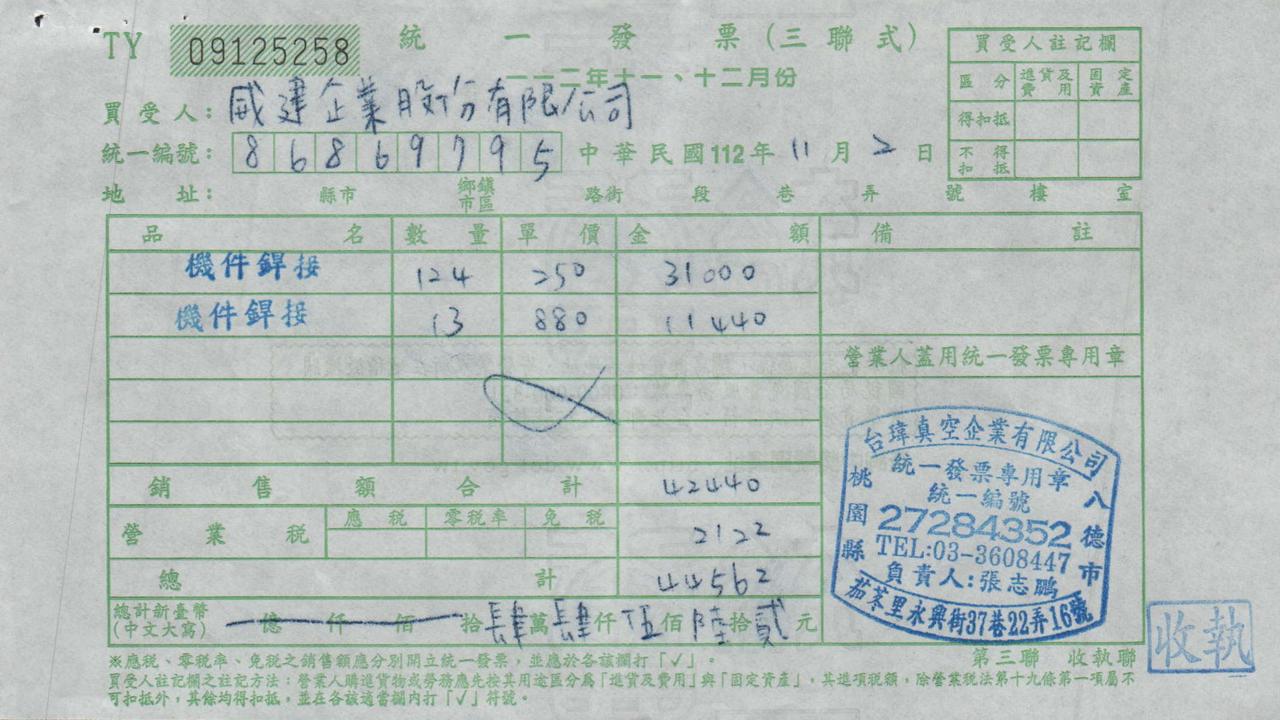 TY 09125258 統一發票(三聯式)
一一二年十一、十二月份
買受人註記欄
區分 進貨及費用 固定資產
得扣抵
不得扣抵
買受人: 威建企業股份有限公司
統一編號: 86869795 中華民國112年 11 月 2 日
地址: 縣市 鄉鎮市區 路街 段 巷 弄 號 樓 室
品名 數量 單價 金額 備註
機件銲接 124 250 31000
機件銲接 13 880 11440
營業人蓋用統一發票專用章
銷售額合計 42440
營業稅 應稅 零稅率 免稅 2122
總計 44562
總計新臺幣(中文大寫) 億 仟 佰 拾 肆 萬 肆 仟 伍 佰 陸 拾 貳 元
台瑋真空企業有限公司
統一發票專用章
統一編號
27284352
TEL:03-3608447
負責人:張志鵬
桃園縣 八德市
茄苳里永興街37巷22弄16號
第三聯 收執聯
收執
※應稅、零稅率、免稅之銷售額應分別開立統一發票,並應於各該欄打「✓」。
買受人註記欄之註記方法:營業人購進貨物或勞務應先按其用途區分為「進貨及費用」與「固定資產」,其進項稅額,除營業稅法第十九條第一項屬不
可扣抵外,其餘均得扣抵,並在各該適當欄內打「✓」符號。